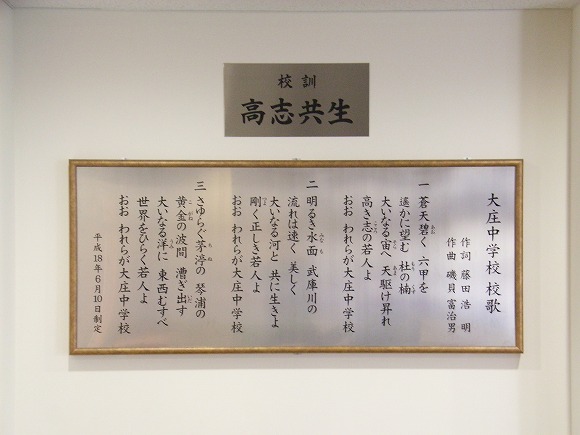 校訓
高志共生
大庄中学校 校歌
作詞 藤田 浩明
作曲 磯貝 富治男
一 蒼天碧く 六甲を
遥かに望む 杜の楠
大いなる宙へ 天駆け昇れ
高き志の若人よ
おお われらが大庄中学校
二 明るき水面 武庫川の
流れは速く 美しく
大いなる河と 共に生きよ
剛く正しき若人よ
おお われらが大庄中学校
三 さゆらぐ茅渟の 琴浦の
黄金の波間 漕ぎ出す
大いなる洋に 東西むすべ
世界をひらく若人よ
おお われらが大庄中学校
平成18年6月10日制定